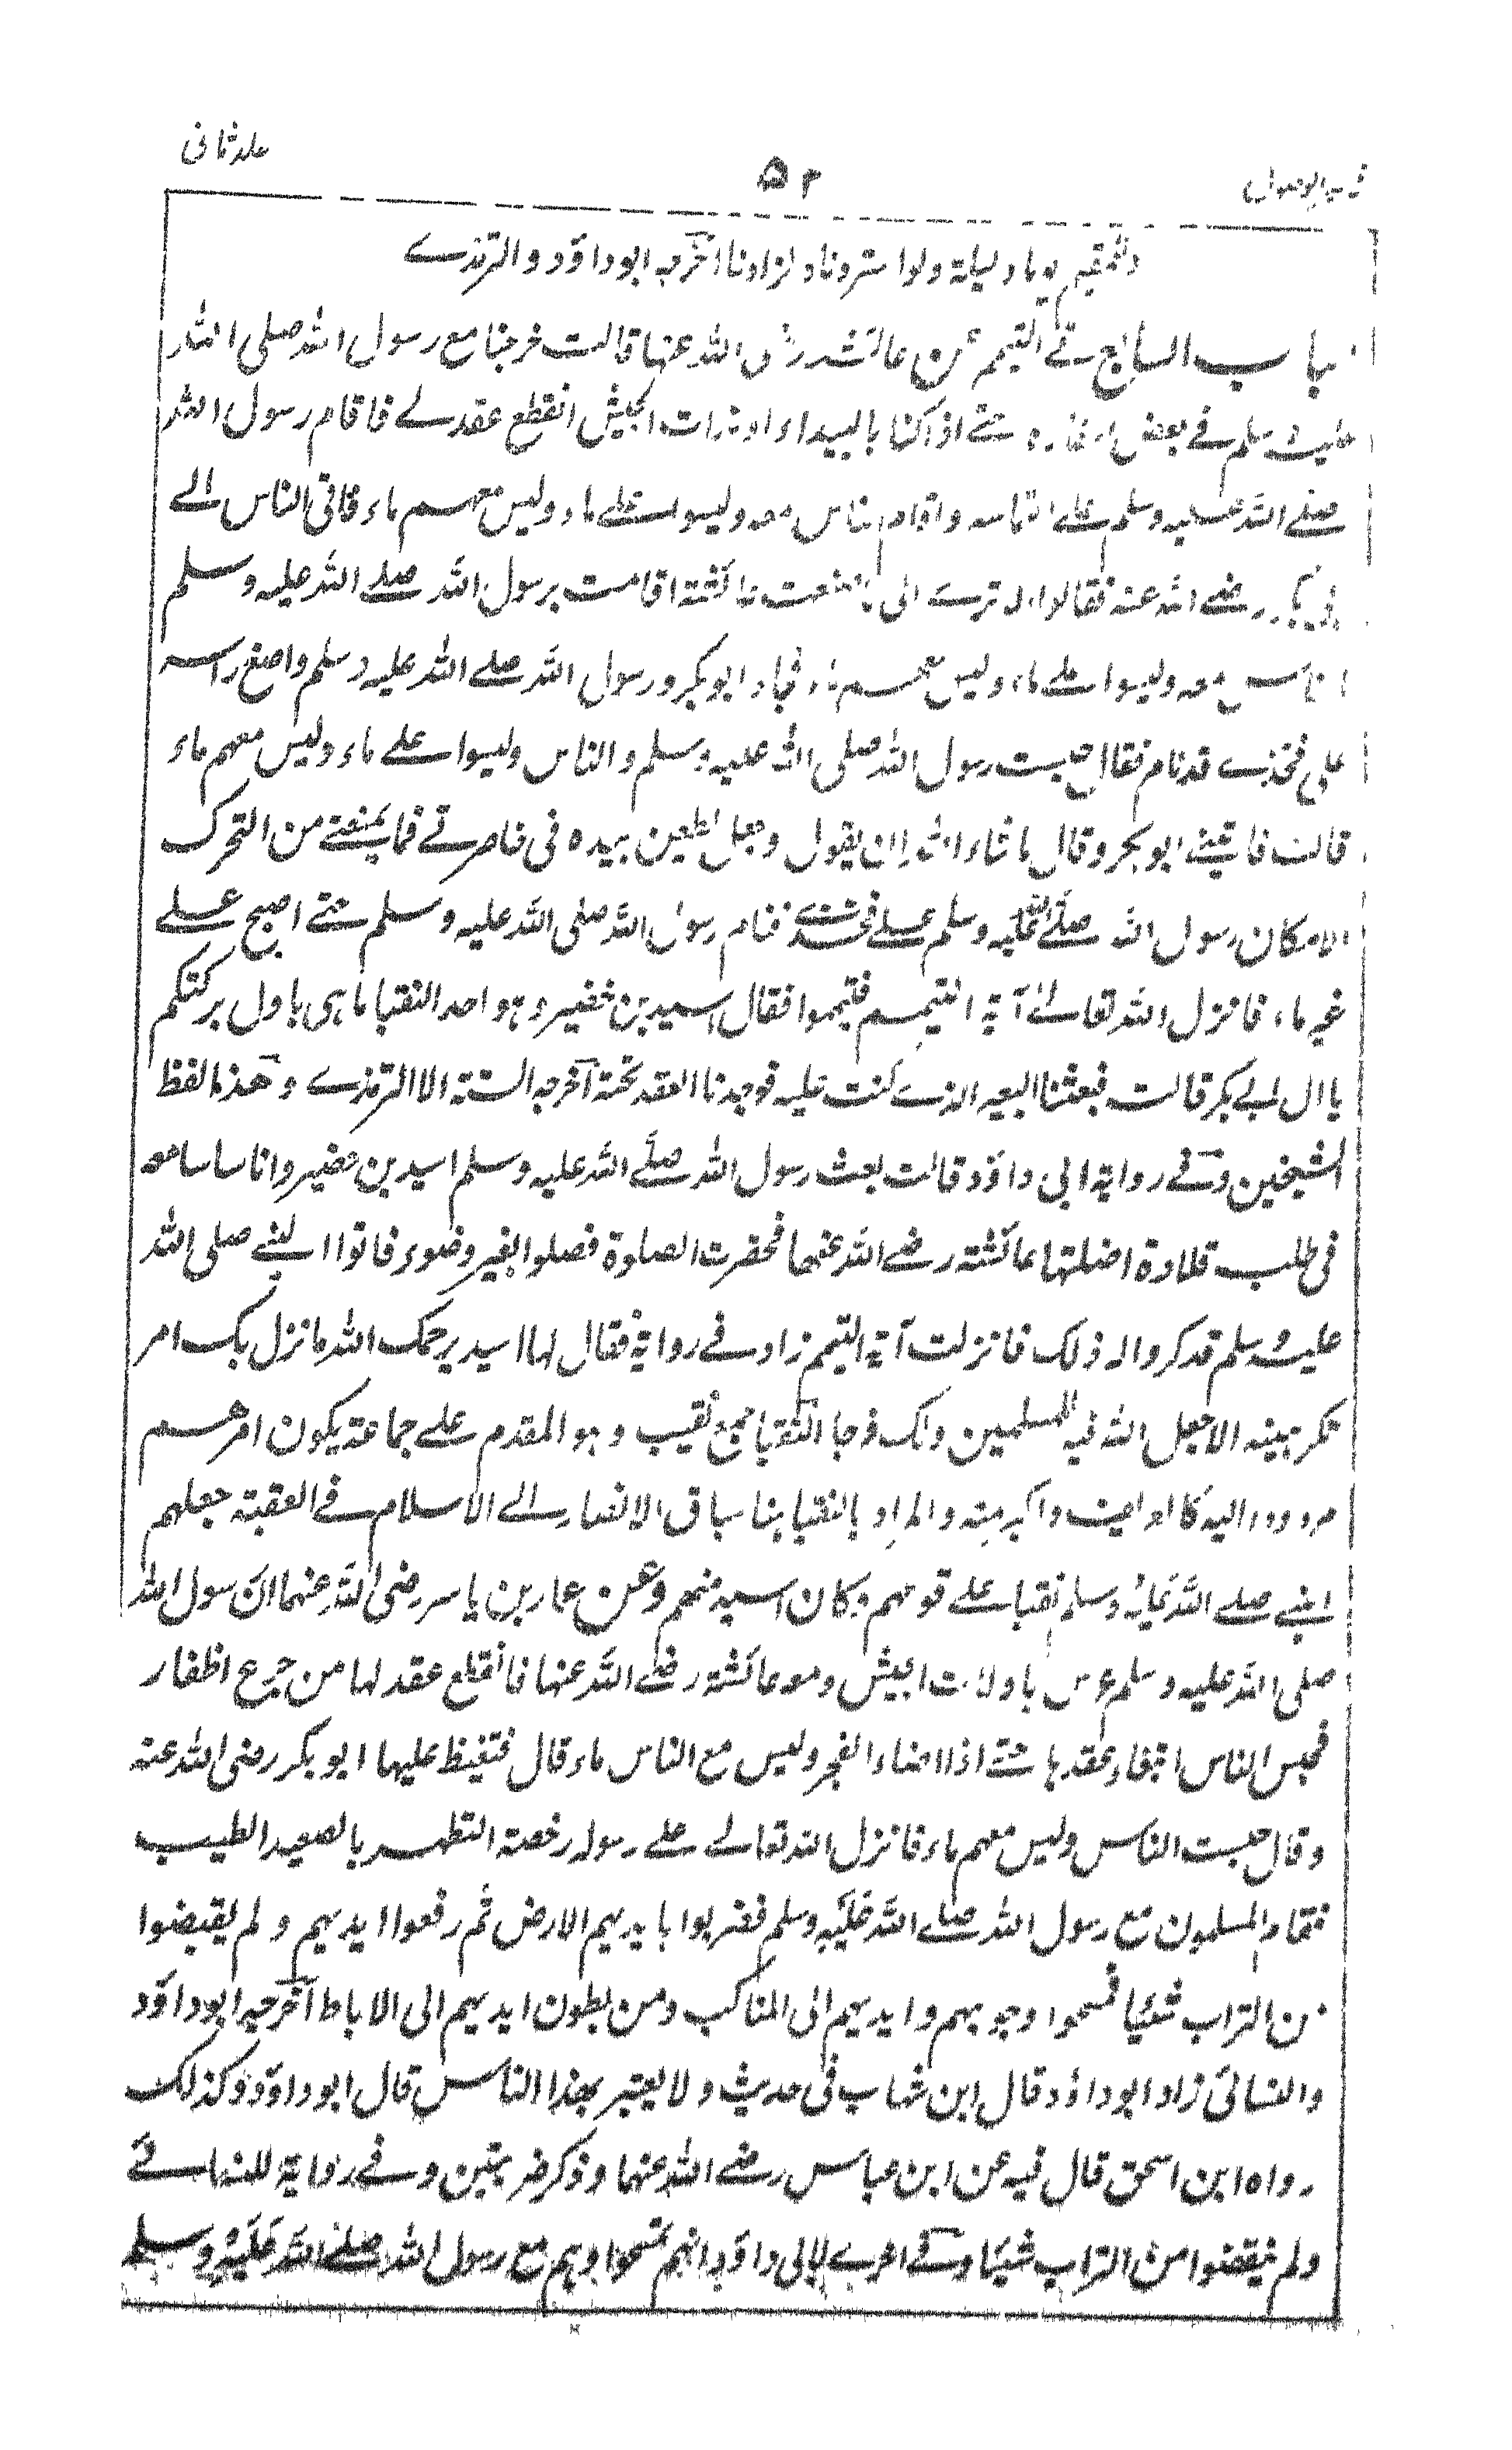 جلد ثانی
۵۲
تيسير الوصول
للمقيم يوما وليلة ولو استزدناه لزادنا اخرجه ابو داؤد والترمذے
الباب السابع فے التيمم عن عائشة رضی الله عنها قالت خرجنا مع رسول الله صلی الله
عليه وسلم فے بعض اسفاره حتے اذا كنا بالبيداء او بذات الجيش انقطع عقد لے فاقام رسول الله
صلے الله عليه وسلم علے التماسه واقام الناس معه وليسوا علے ماء وليس معهم ماء فاتی الناس الے
ابی بكر رضے الله عنه فقالوا الا ترے الی ما صنعت عائشة اقامت برسول الله صلے الله عليه وسلم
بالناس معه وليسوا علے ماء وليس معهم ماء فجاء ابو بكر ورسول الله صلے الله عليه وسلم واضع راسه
علی فخذے قد نام فقال حبست رسول الله صلی الله عليه وسلم والناس وليسوا علے ماء وليس معهم ماء
قالت فعاتبنے ابو بكر وقال ما شاء الله ان يقول وجعل يطعن بيده فی خاصرتے فما يمنعنے من التحرك
الا مكان رسول الله صلے الله عليه وسلم علے فخذے فنام رسول الله صلی الله عليه وسلم حتے اصبح علے
غير ماء فانزل الله تعالے آية التيمم فتيمموا فقال اسيد بن حضير وهو احد النقبا ما هی باول بركتكم
يا ال ابی بكر قالت فبعثنا البعير الذے كنت عليه فوجدنا العقد تحته اخرجه الستة الا الترمذے وهذا لفظ
الشيخين وفے رواية ابی داؤد قالت بعث رسول الله صلے الله عليه وسلم اسيد بن حضير واناسا معه
فی طلب قلادة اضلتها عائشة رضے الله عنها فحضرت الصلوة فصلوا بغير وضوء فاتوا النبے صلی الله
عليه وسلم فذكروا له ذلك فانزلت آية التيمم زاد فے رواية فقال لها اسيد يرحمك الله ما نزل بك امر
تكرهينه الا جعل الله فيه للمسلمين ولك فرجا النقبا جمع نقيب وهو المقدم علے جماعة يكون امرهم
مردودا اليه كالعريف واكبر منه والمراد بالنقبا هنا سباق الانصار الے الاسلام فے العقبة جعلهم
النبے صلے الله عليه وسلم نقبا علے قومهم وكان اسيد منهم وعن عمار بن ياسر رضی الله عنهما ان رسول الله
صلی الله عليه وسلم عرس باولات الجيش ومعه عائشة رضے الله عنها فانقطع عقد لها من جزع اظفار
فحبس الناس ابتغاء عقدها حتے اذا اضاء الفجر وليس مع الناس ماء قال فتغيظ عليها ابو بكر رضی الله عنه
وقال حبست الناس وليس معهم ماء فانزل الله تعالے علے رسوله رخصة التطهر بالصعيد الطيب
فقام المسلمون مع رسول الله صلے الله عليه وسلم فضربوا بايديهم الارض ثم رفعوا ايديهم ولم يقبضوا
من التراب شيئا فمسحوا وجوههم وايديهم الی المناكب ومن بطون ايديهم الی الاباط اخرجه ابو داؤد
والنسائی زاد ابو داؤد قال ابن شهاب فی حديثه ولا يعتبر بهذا الناس قال ابو داؤد وكذلك
رواه ابن اسحق قال فيه عن ابن عباس رضے الله عنهما وذكر ضربتين وفے رواية للنسائے
ولم ينفضوا من التراب شيئا وفے اخرے لابی داؤد انهم تمسحوا وهم مع رسول الله صلے الله عليه وسلم